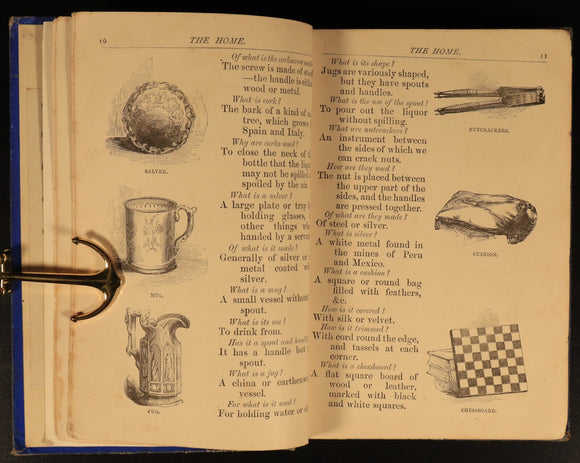 10
THE HOME.
SALVER.
MUG.
JUG.
Of what is the corkscrew
The screw is made of
—the handle is
wood or metal.
What is cork?
The bark of a kind of
tree, which grows
Spain and Italy.
Why are corks used?
To close the neck of
bottle that the
may not be
spoiled by the air.
What is a salver?
A large plate or tray
holding glasses,
other things
handed by a
Of what is it made?
Generally of silver or
metal coated
silver.
What is a mug?
A small vessel without
spout.
What is its use?
To drink from.
Has it a spout and
It has a handle but
spout.
What is a jug?
A china or
vessel.
For what is it used?
For holding water or
THE HOME.
11
What is its shape?
Jugs are variously shaped,
but they have spouts
and handles.
What is the use of the spout?
To pour out the liquor
without spilling.
What are nutcrackers?
An instrument between
the sides of which we
can crack nuts.
How are they used?
The nut is placed between
the upper part of the
sides, and the handles
are pressed together.
Of what are they made?
Of steel or silver.
What is silver?
A white metal found in
the mines of Peru
and Mexico.
What is a cushion?
A square or round bag
filled with feathers,
&c.
How is it covered?
With silk or velvet.
How is it trimmed?
With cord round the edge,
and tassels at each
corner.
What is a chessboard?
A flat square board of
wood or leather,
marked with black
and white squares.
NUTCRACKERS.
CUSHION.
CHESSBOARD.